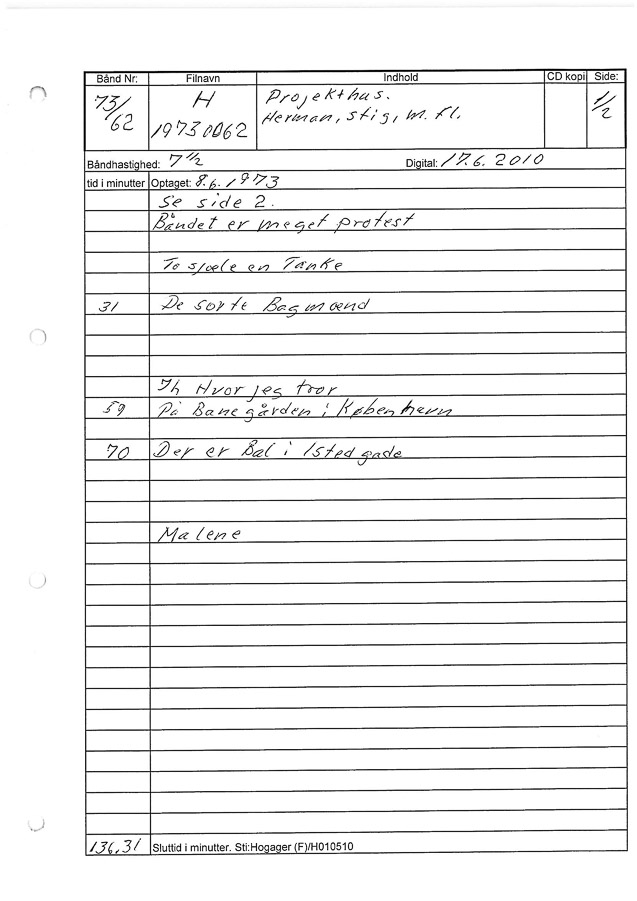 Bånd Nr: Filnavn Indhold CD kopi Side:
73/62 H 19730062 Projekthus. Herman, stig, m. fl. 1/2
Båndhastighed: 7 1/2 Digital: 17.6. 2010
tid i minutter Optaget: 8.6.1973
Se side 2.
Båndet er meget protest
To sjæle en Tanke
31 De sorte Bagmænd
Ih Hvor jeg tror
59 På Banegården i København
70 Der er Bal i Istedgade
Malene
136,31 Sluttid i minutter. Sti:Hogager (F)/H010510